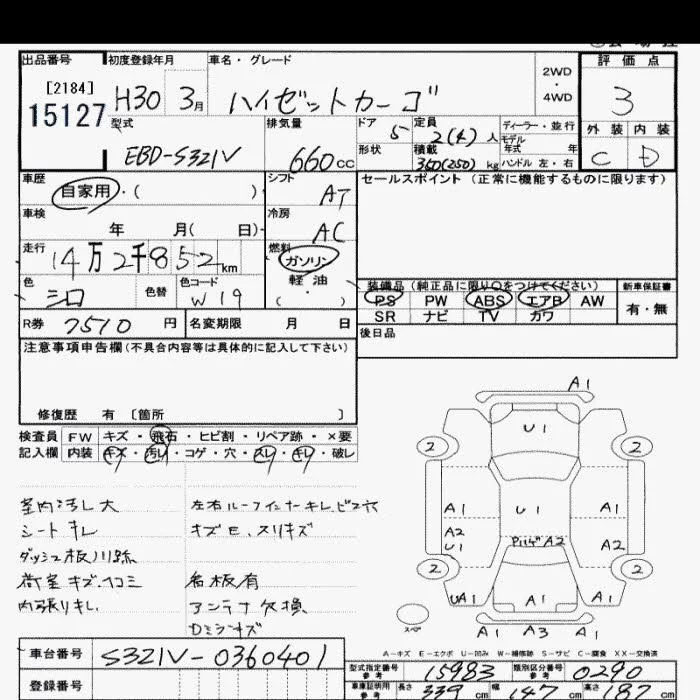 出品番号 初度登録年月 車名・グレード 評価点
[2184]
15127
H30 3月 ハイゼットカーゴ
2WD
・
4WD
3
型式 排気量 ドア 定員 ディーラー・並行 外装 内装
EBD-S321V 660cc 5 2(4)人 モデル年式 年
形状 積載 350(250)kg ハンドル 左・右 C D
車歴 シフト セールスポイント (正常に機能するものに限ります)
自家用・( ) AT
車検 冷房
年 月( 日) AC
走行 燃料
14万2千852km ガソリン
色 色替 色コード 軽油
シロ W19 ・( )
装備品 (純正品に限り○をつけてください) 新車保証書
PS PW ABS エアB AW 有・無
SR ナビ TV カワ
R券 7510円 名変期限 月 日
後日品
注意事項申告欄(不具合内容等は具体的に記入して下さい)
修復歴 有 〔箇所 〕
検査員 FW キズ・飛石・ヒビ割・リペア跡・×要
記入欄 内装 キズ・汚レ・コゲ・穴・スレ・キレ・破レ
室内汚レ大 左右ルーフインナーキレ、ビス穴
シートキレ キズE、スリキズ
ダッシュ板
荷室キズ、凹ミ 名板有
内張りキレ アンテナ欠損
Dミラーキズ
A1
U1
2 2
A1 U1 A1
A2
U1
A2
A2
2 2
UA1 A1 A1
スペア
A1 A3 A1
A-キズ E-エクボ U-凹み W-補修跡 S-サビ C-腐食 XX-交換済
車台番号 S321V-0360401
型式指定番号 参考 15983 類別区分番号 参考 0290
登録番号
車庫証明用 参考 長さ 339cm 幅 147cm 高さ 187cm